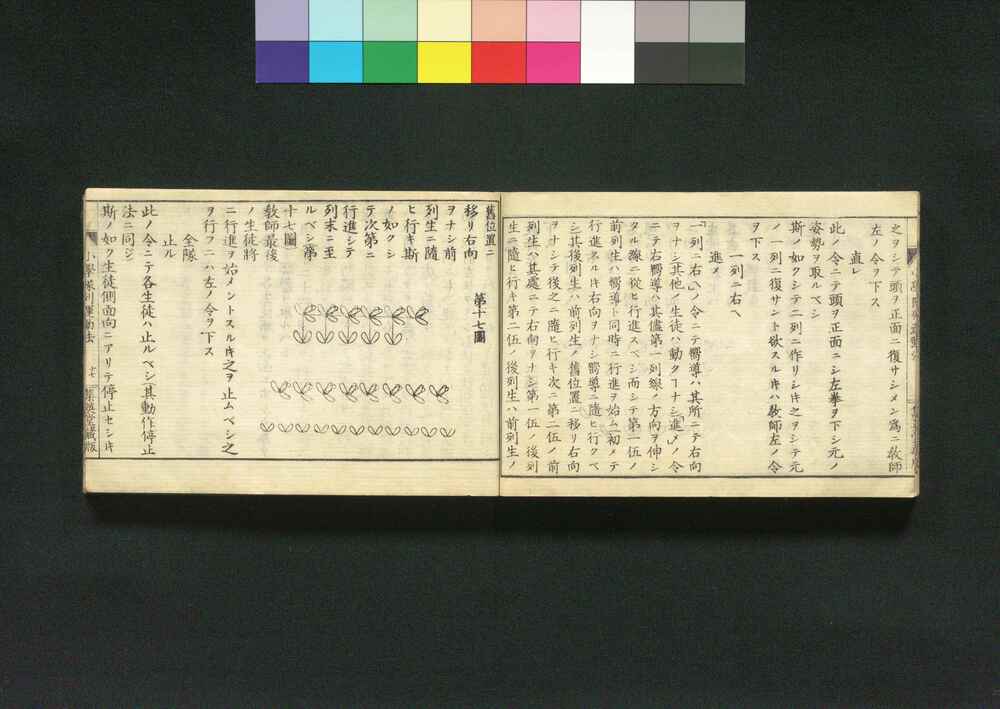 之ヲシテ頭ヲ正面ニ復サシメン爲ニ教師
左ノ令ヲ下ス
直レ
此ノ令ニテ頭ヲ正面ニシ左拳ヲ下シ元ノ
姿勢ヲ取ルベシ
斯ノ如クシテ二列ニ作リシ𪜈之ヲシテ元
ノ一列ニ復サント欲スル𪜈ハ教師左ノ令
ヲ下ス
一列ニ右ヘ
進メ
「一列ニ右ヘ」ノ令ニテ嚮導ハ其所ニテ右向
ヲナシ其他ノ生徒ハ動クヿナシ「進メ」ノ令
ニテ右嚮導ハ其儘第一列線ノ方向ヲ伸シ
タル線ニ從ヒ行進スベシ而シテ第一伍ノ
前列生ハ嚮導ト同時ニ行進ヲ始ム初メテ
行進スル𪜈右向ヲナシ嚮導ニ隨ヒ行クベ
シ其後列生ハ前列生ノ舊位置ニ移リ右向
ヲナシテ後之ニ隨ヒ行キ次ニ第二伍ノ前
列生ハ其處ニテ右向ヲナシ第一伍ノ後列
生ニ隨ヒ行キ第二伍ノ後列生ハ前列生ノ
舊位置ニ
移リ右向
ヲナシ前
列生ニ隨
ヒ行キ斯
ノ如クシ
テ次第ニ
行進シテ
列末ニ至
ルベシ第
十七圖
第十七圖
教師最後
ノ生徒將
ニ行進ヲ始メントスル𪜈之ヲ止ムベシ之
ヲ行フニハ左ノ令ヲ下ス
全隊
止ル
此ノ令ニテ各生徒ハ止ルベシ其動作停止
法ニ同ジ
斯ノ如ク生徒側面向ニアリテ停止セシ𪜈
小學隊列運動法
十七
藏版